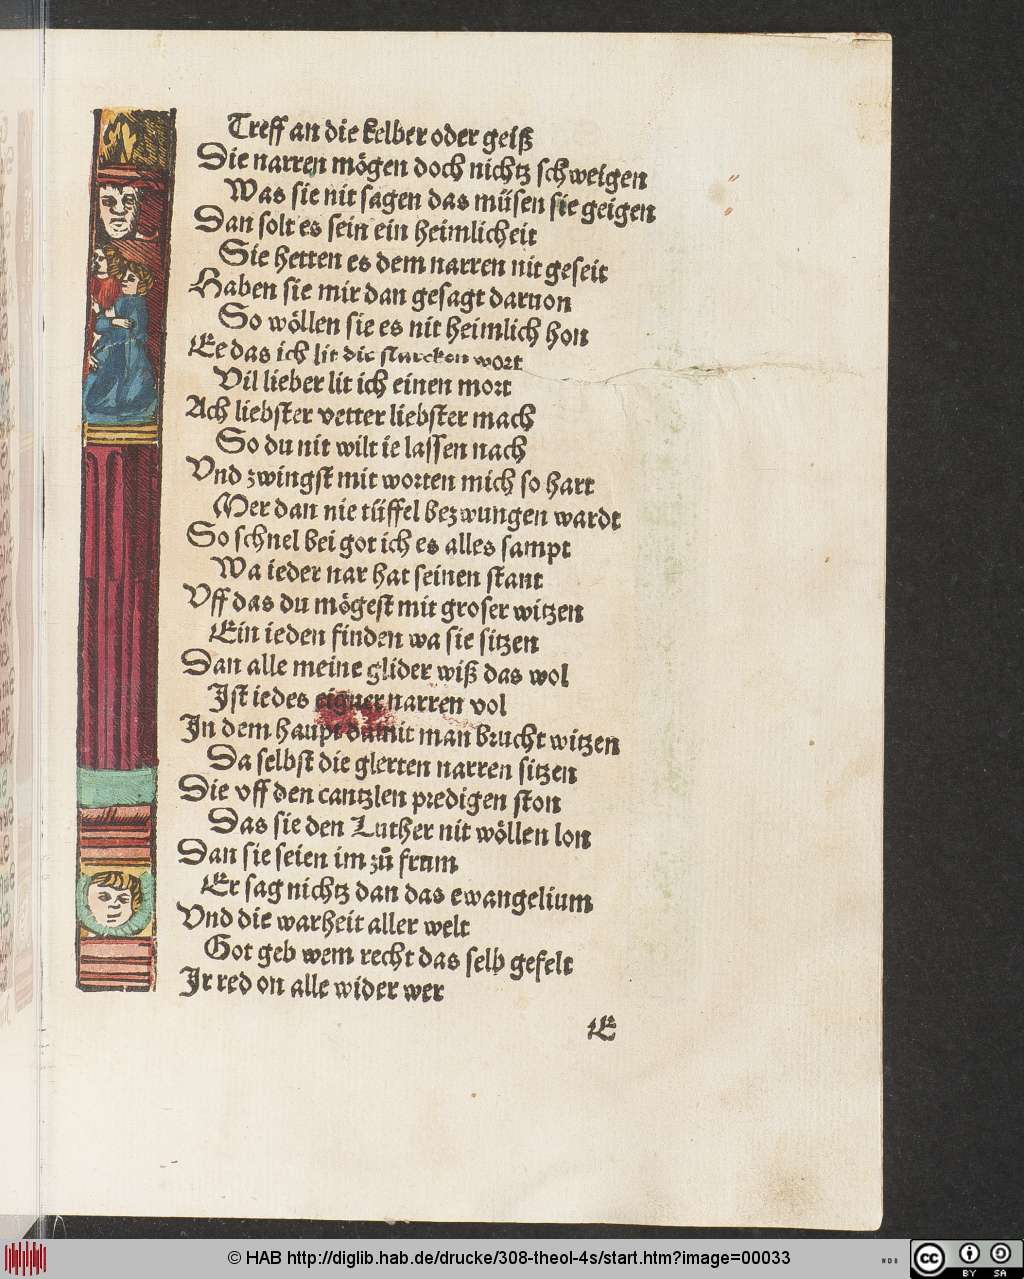 Treff an die kelber oder geiß
Die narren mögen doch nichtz schweigen
Was sie nit sagen das müsen sie geigen
Dan solt es sein ein heimlicheit
Sie hetten es dem narren nit geseit
Haben sie mir dan gesagt daruon
So wöllen sie es nit heimlich hon
Ee das ich lit die starcken wort
Vil lieber lit ich einen mort
Ach liebster vetter liebster mach
So du nit wilt ie lassen nach
Vnd zwingst mit worten mich so hart
Mer dan nie tüffel bezwungen wardt
So schnel bei got ich es alles sampt
Wa ieder nar hat seinen stant
Vff das du mögest mit groser witzen
Ein ieden finden wa sie sitzen
Dan alle meine glider wiß das wol
Jst iedes eigner narren vol
Jn dem haupt damit man brucht witzen
Da selbst die glerten narren sitzen
Die vff den cantzlen predigen ston
Das sie den Luther nit wöllen lon
Dan sie seien im zů frum
Er sag nichtz dan das ewangelium
Vnd die warheit aller welt
Got geb wem recht das selb gefelt
Jr red on alle wider wer
E
© HAB http://diglib.hab.de/drucke/308-theol-4s/start.htm?image=00033
WDB
cc BY SA